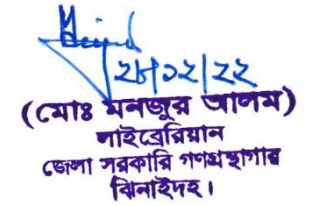 ২৮/১২/২২
(মোঃ মনজুর আলম)
লাইব্রেরিয়ান
জেলা সরকারি গণগ্রন্থাগার
ঝিনাইদহ।